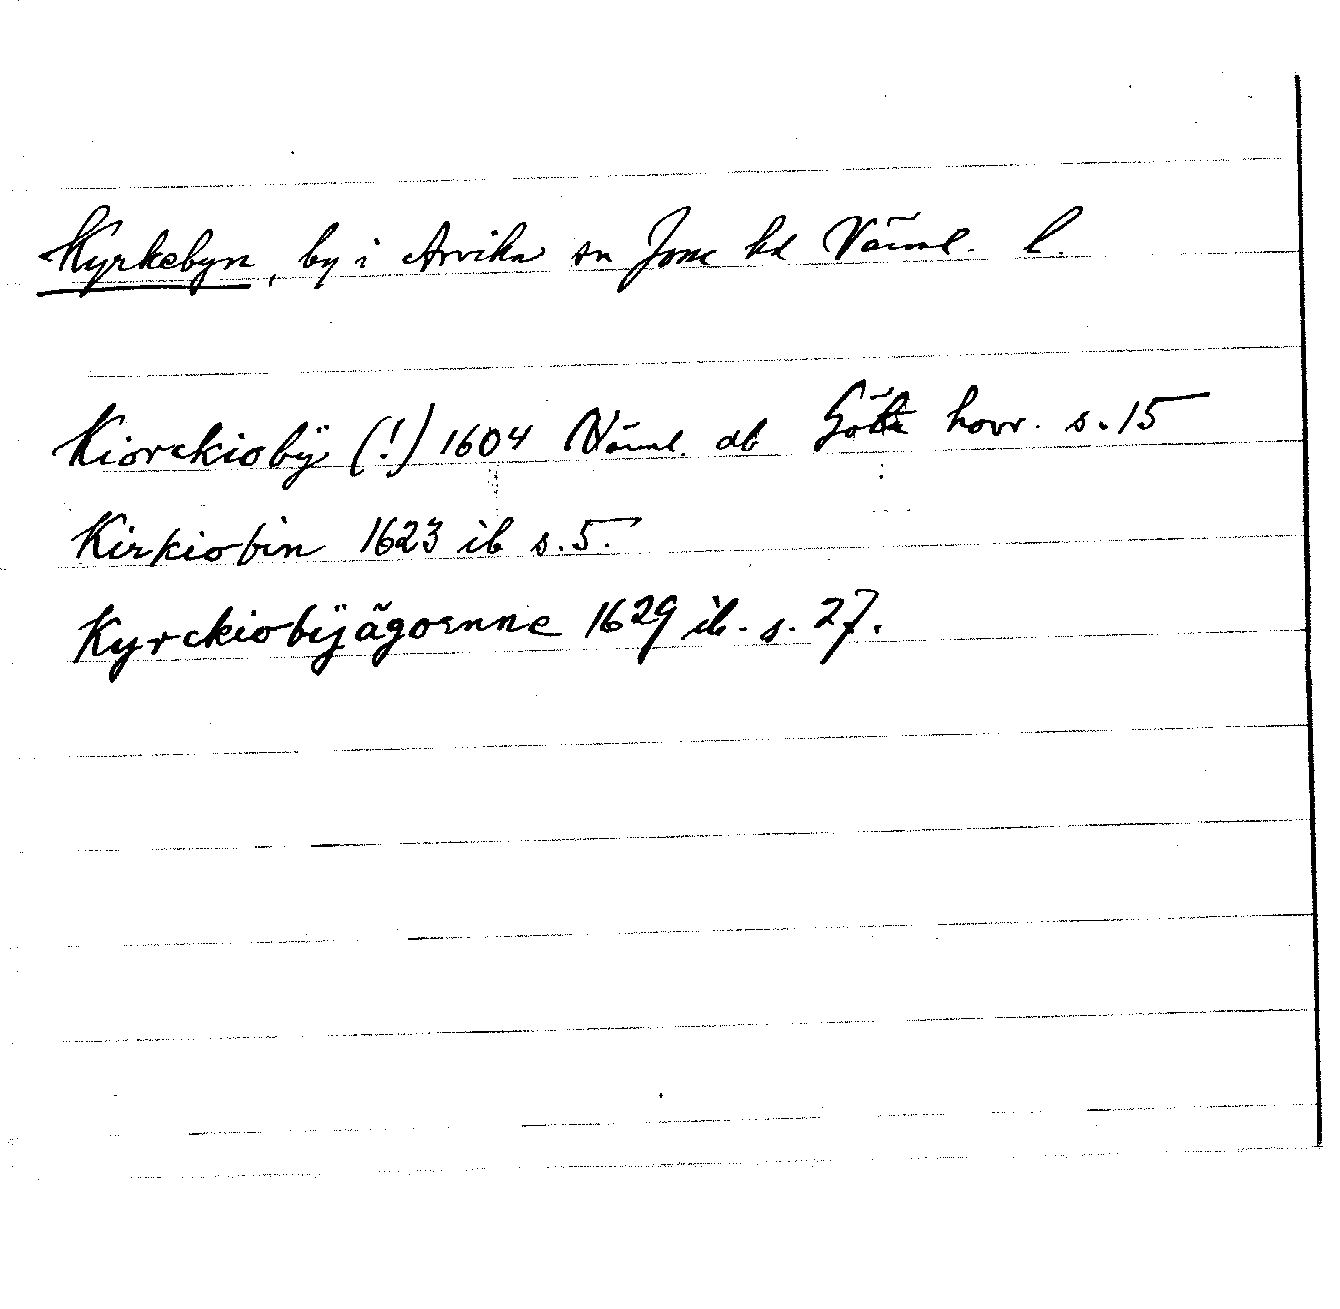 Kyrkebyn, by i Arvika sn Jösse hd Värml. l.
Kiorckiobÿ (!) 1604 Värml. db Göta hovr. s. 15
Kirkiobin 1623 ib s. 5.
Kyrckiobijägornne 1629 ib. s. 27.